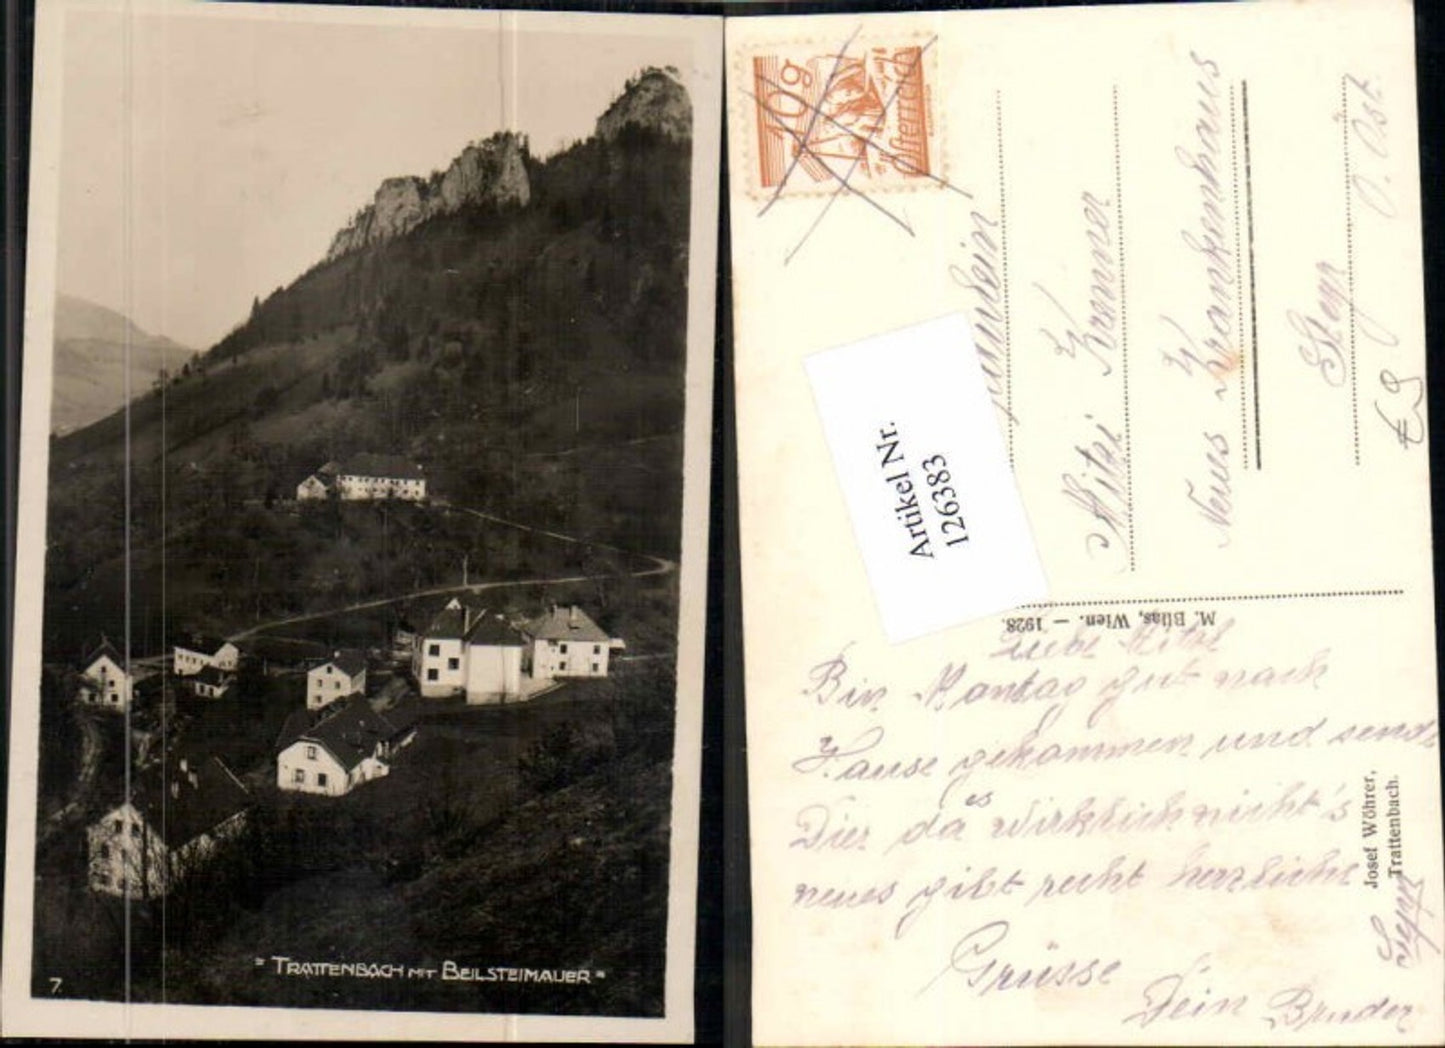 7.
"TRATTENBACH MIT BEILSTEIMAUER"
10g
Österreich
Artikel Nr.
126383
Mitzi Kremer
Neues Krankenhaus
Steyr
O. Öst.
€9
M. Bilas, Wien. — 1928.
Liebe Mitzi
Bin Montag gut nach
Hause gekommen und sende
Dier da es wirklich nicht's
neues gibt recht herzliche
Grüsse
Dein Bruder
Sepp
Josef Wöhrer,
Trattenbach.